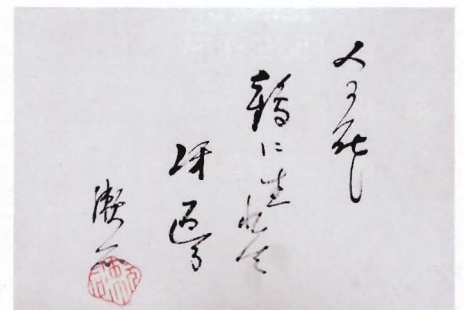 人に死し
鶴に生れて
冴返る
漱石